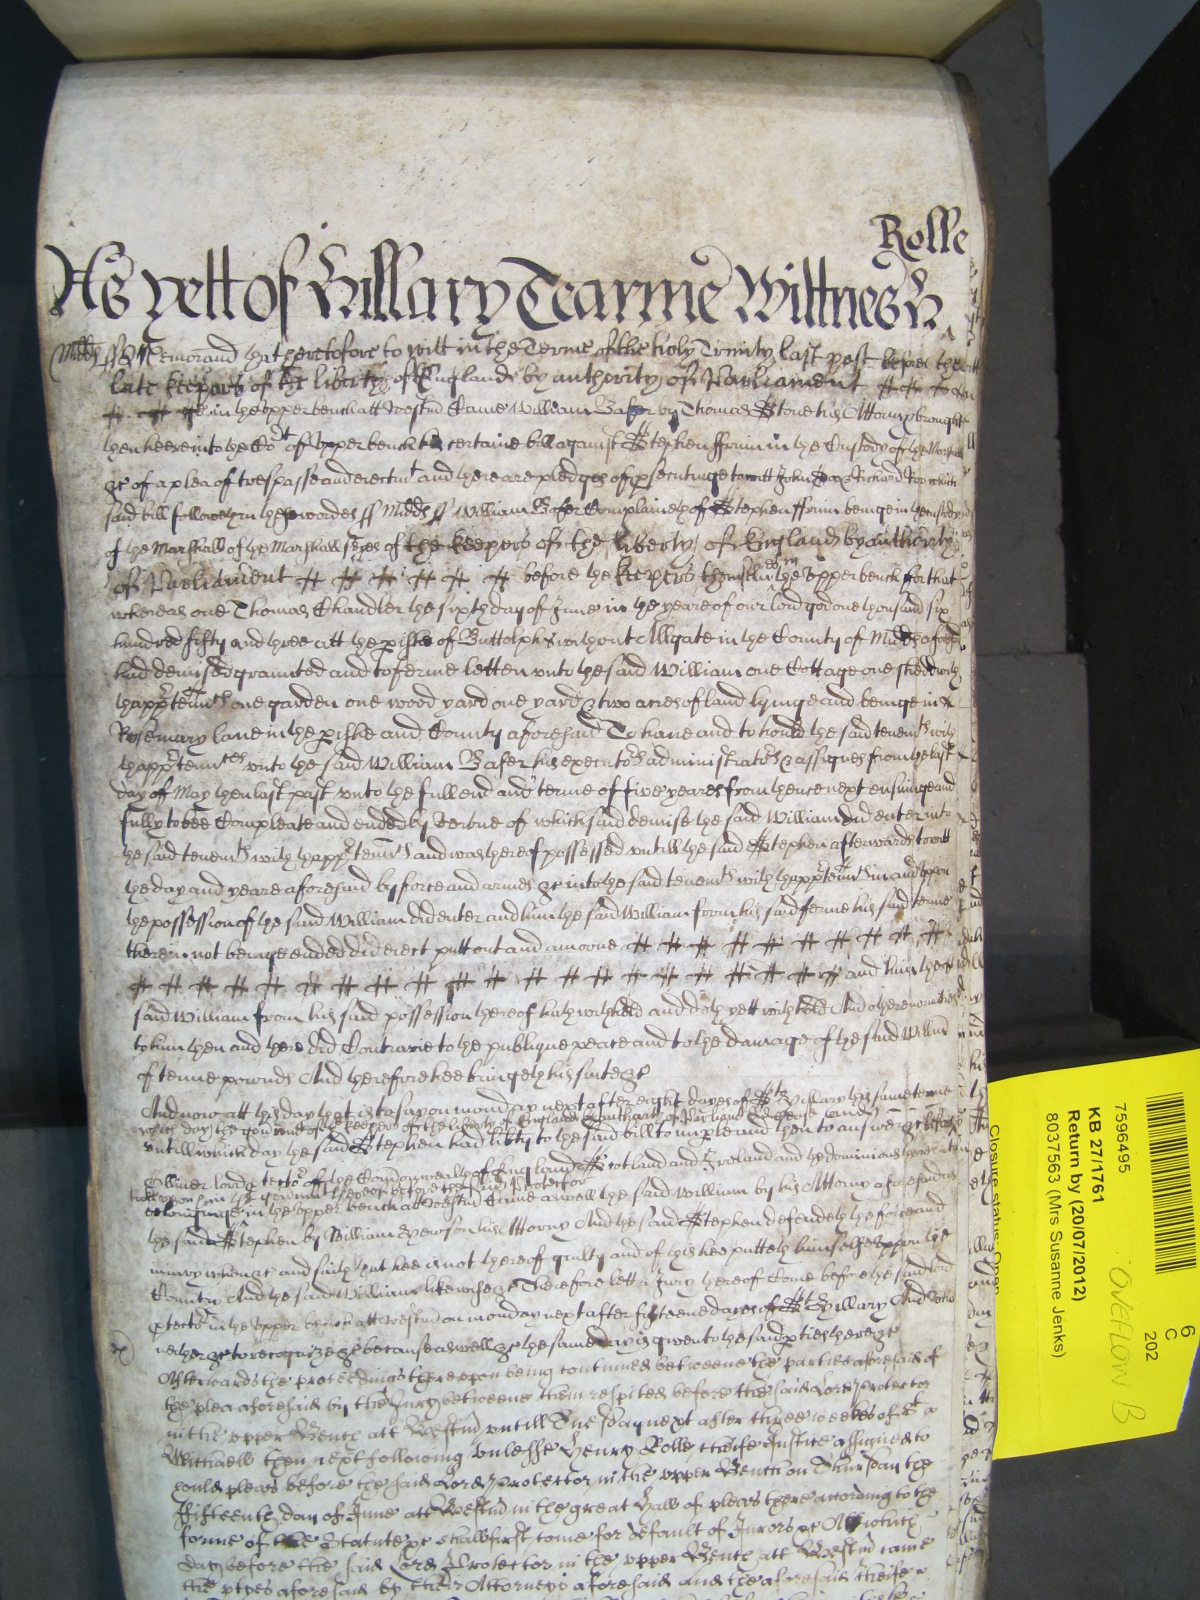 Rolle
As yett of Hillary Tearme Wittnes H
Midds ss Memorand that heretofore to witt in the Terme of the holy Trinity last past before the
late keepers of the liberty of England by authority of Parliament
in the upper bench att Westm Came William Baker by Thomas Stone his Attorny brought
then heere into the Cort of Upper bench his certaine bill against Stephen ffrinn in the Custody of the Marshall
&c of a plea of trespasse and eiectmt and there are pledges of psecutinge towitt John Doo & Richard Roo which
said bill followeth in these wordes ss Midds ss William Baker Complaineth of Stephen ffrinn beinge in the custody
of the Marshall of the Marshallseyes of the keepers of the liberty of England by authority
of Parliament before the keepers themselves in the Upper bench for that
whereas one Thomas Chandler the sixth day of June in the yeare of our lord god one thousand six
hundred fifty and three att the pishe of Buttolphs without Allgate in the County of Midds aforesd
had demised graunted and to ferme letten unto the said William one Cottage one shedd with
thappurtenncs one garden one wood yard one yard & two acres of land lyinge and beinge in
Rosemary lane in the pishe and County aforesaid To have and to hould the said tenemts with
thapptenncs unto the said William Baker his executors administrators & assignes from the last
day of May then last past unto the full end and terme of five yeares from thence next ensuinge and
fully to bee Compleate and ended by vertue of which said demise the said William did enter into
the said tenemts with thapptenncs and was thereof possessed untill the said Stephen afterwards towitt
the day and yeare aforesaid by force and armes &c into the said tenemts with thapptenncs in and uppon
the possession of the said William did enter and him the said William from his said ferme his said terme
therein not beinge ended did eiect putt out and amove
and him the
said William from his said possession thereof hath withheld and doth yett withhold And other enormities
to him then and there did Contrarie to the publique peace and to the damage of the said Willm
of tenne pounds And therefore hee bringeth his suite &c
And now att this day that is to say on monday next after eight dayes of St Hillary this same terme
untill which day the said Stephen had liberty to the said bill to imparle and then to answer &c before
Oliver lord ptector of the Commonwealth of England Scotland and Ireland and the dominions thereunto
belonginge in the upper bench att Westm Came aswell the said William by his Attorny aforesaid as
the said Stephen by William Hewson his Attorny And the said Stephen defendeth the force and
iniury when &c and saith that hee is not thereof guilty and of this hee putteth himselfe uppon the
Country And the said William likewise &c Therefore lett a Jury thereof Come before the said lord
ptector in the upper bench att Westm on monday next after fifteene dayes of St Hillary And who
neither &c to recognize &c because aswell &c the same day is given to the said pties there &c
Afterwards the proceedings thereupon being continued betweene the parties aforesaid of
the plea aforesaid by the Jury betweene them respited before the said Lord Protector
in the upper Bench att Westm untill Tuesday next after three weekes of St
Michaell then next following unlesse Henry Rolle cheife Justice assigned to
hould pleas before the said Lord Protector in the upper Bench on Thursday the
fifteenth day of June att Westm in the great Hall of pleas there according to the
forme of the Statute &c shall first come for default of Jurors &c Att which
day before the said Lord Protector in the upper Bench att Westm came
the ptyes aforesaid by their Attorneys aforesaid And the aforesaid cheife
7596495
KB 27/1761
Return by (20/07/2012)
8037563 (Mrs Susanne Jenks)
Closure status: Open
6
C
202
OVERFLOW B